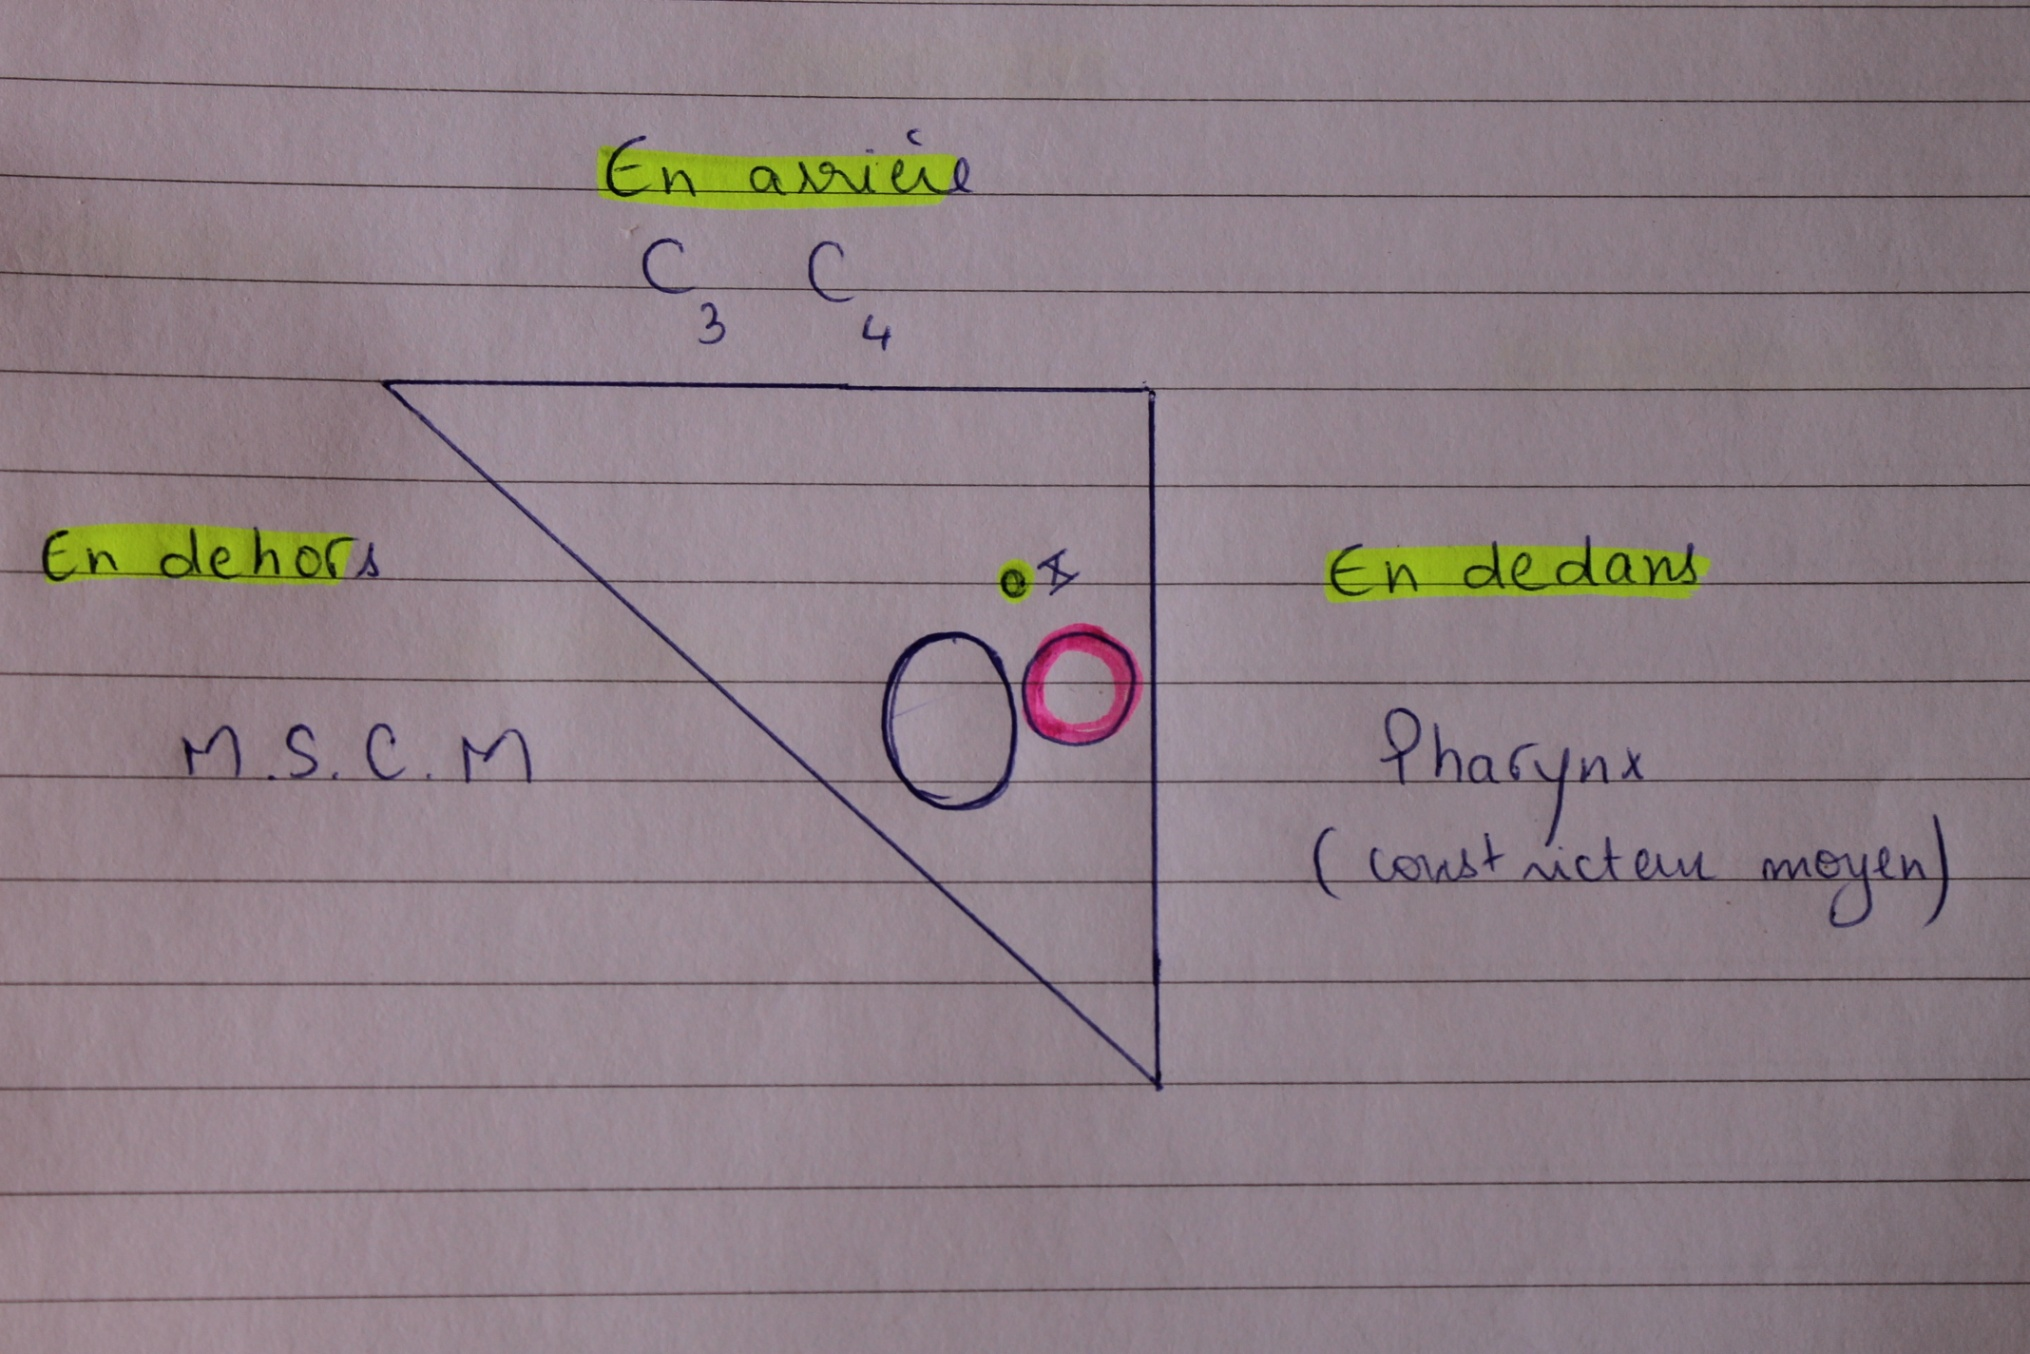 En arrière
C3 C4
En dehors
X
En dedans
M.S.C.M
Pharynx
(constricteur moyen)